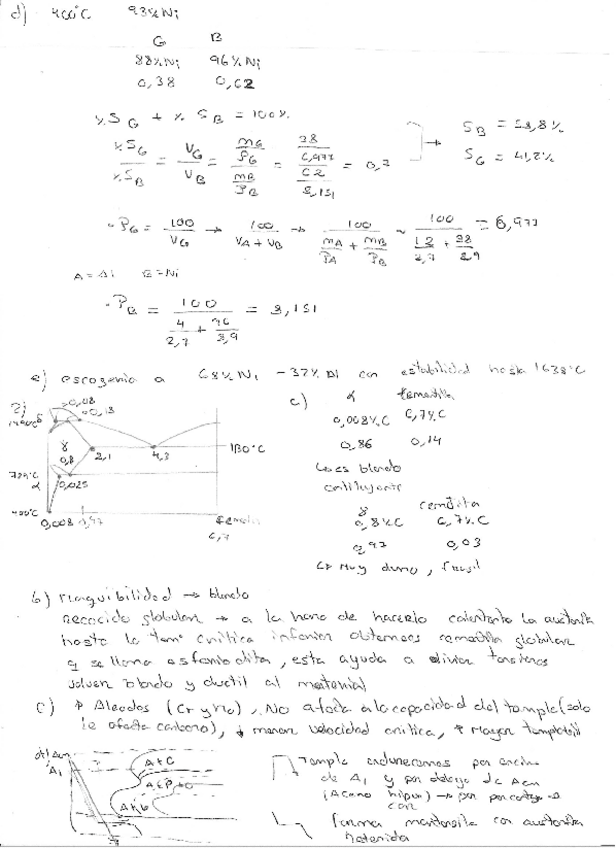 d) 400°C 93%Ni
G B
88%Ni 96%Ni
0,38 0,62
% S_G + % S_B = 100%
%S_G / %S_B = V_G / V_B = (m_G/ρ_G) / (m_B/ρ_B) = (38/6,977) / (62/8,151) = 0,7 → S_B = 58,8% S_G = 41,2%
· ρ_G = 100/V_G → 100/(V_A + V_B) → 100/(m_A/ρ_A + m_B/ρ_B) ~ 100/(12/2,7 + 88/8,9) = 6,977
A = Al B = Ni
· ρ_B = 100/(4/2,7 + 96/8,9) = 8,151
e) escogería a 68% Ni - 32% Al con estabilidad hasta 1638°C
2)
0,08
0,18
δ
γ
0,8
2,1
4,3
1130°C
α
0,025
400°C
0,008
6,7
c) α Cementita
0,008%C 6,7%C
0,86 0,14
Lo es blando
γ cementita
0,8%C 6,7%C
0,97 0,03
↳ Muy duro, frágil
b) Maquibilidad → blando
recocido globular → a la hora de hacerlo calentanto la austenita
hasta la tem° critica inferior obtenemos cementita globular
q se llama esferoidita, esta ayuda a aliviar tensiones
volver blando y ductil al material
c) Aleados (Cr y Mo), No afecta a la capacidad del temple (solo
le afecta carbono), ↓ menor velocidad critica, ↑ Mayor templabili
A1
A+C
Temple
de A1 y por debajo de Acm
(Acero hiper) →
↳ forma martensita con austenita
retenida